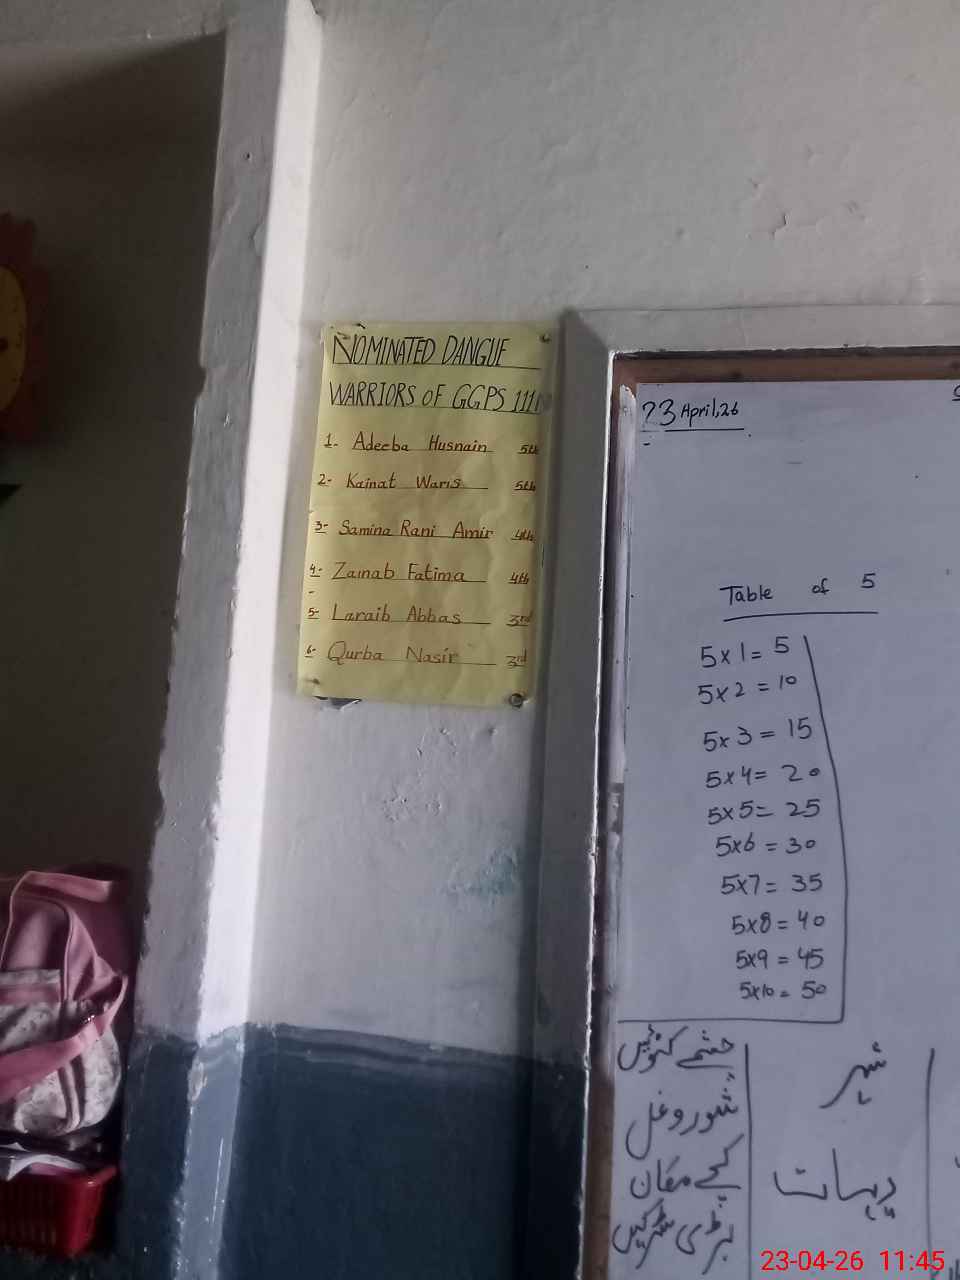 NOMINATED DANGUE
WARRIORS OF GGPS 111
1- Adeeba Husnain 5th
2- Kainat Waris 5th
3- Samina Rani Amir 4th
4- Zainab Fatima 4th
5- Laraib Abbas 3rd
6- Qurba Nasir 3rd
23 April,26
Table of 5
5x1=5
5x2=10
5x3=15
5x4=20
5x5=25
5x6=30
5x7=35
5x8=40
5x9=45
5x10=50
چشمے کنوئیں
شور و غل
کچے مکان
بڑی سڑکیں
شہر
دیہات
23-04-26 11:45